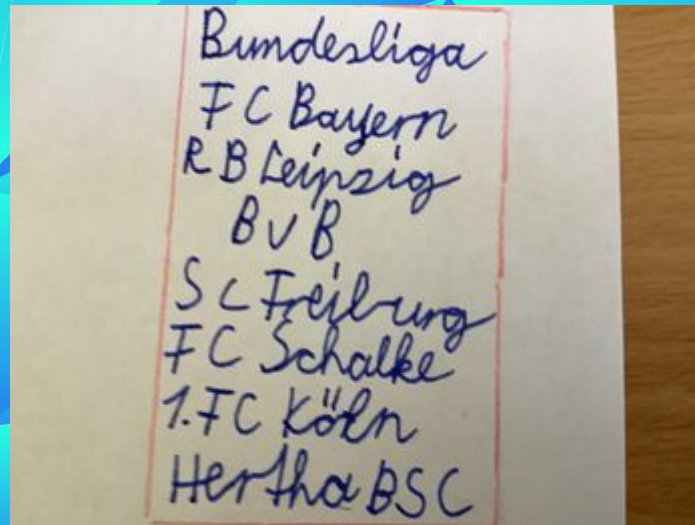 Bundesliga
FC Bayern
RB Leipzig
BVB
SC Freiburg
FC Schalke
1. FC Köln
Hertha BSC